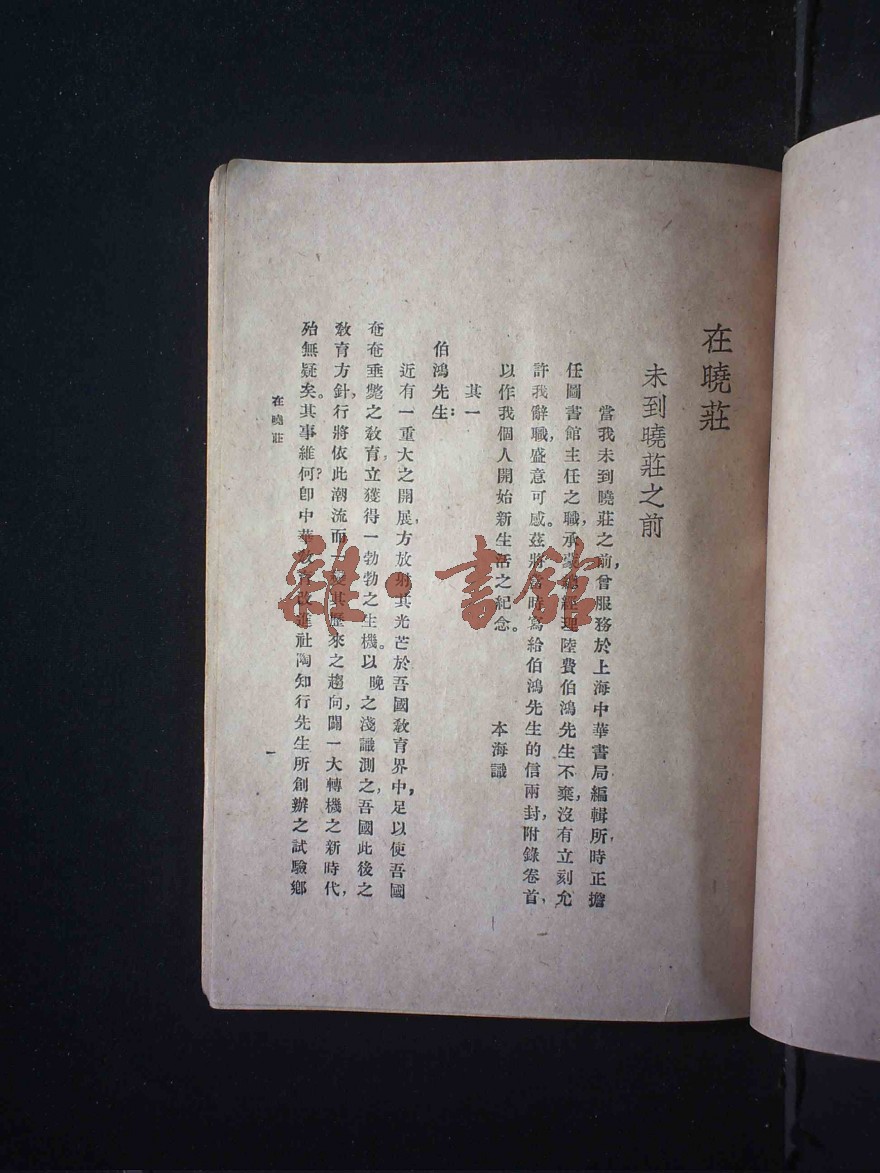 在曉莊
未到曉莊之前
當我未到曉莊之前，曾服務於上海中華書局編輯所，時正擔
任圖書館主任之職，承蒙總經理陸費伯鴻先生不棄，沒有立刻允
許我辭職，盛意可感。茲將當時寫給伯鴻先生的信兩封，附錄卷首，
以作我個人開始新生活之紀念。 本海識
其一
伯鴻先生：
近有一重大之開展，方放射其光芒於吾國敎育界中，足以使吾國
奄奄垂斃之敎育，立獲得一勃勃之生機。以晚之淺識測之，吾國此後之
敎育方針，行將依此潮流而一變其歷來之趨向，闢一大轉機之新時代，
殆無疑矣。其事維何？卽中華敎育改進社陶知行先生所創辦之試驗鄉
在曉莊
一
雜·書館